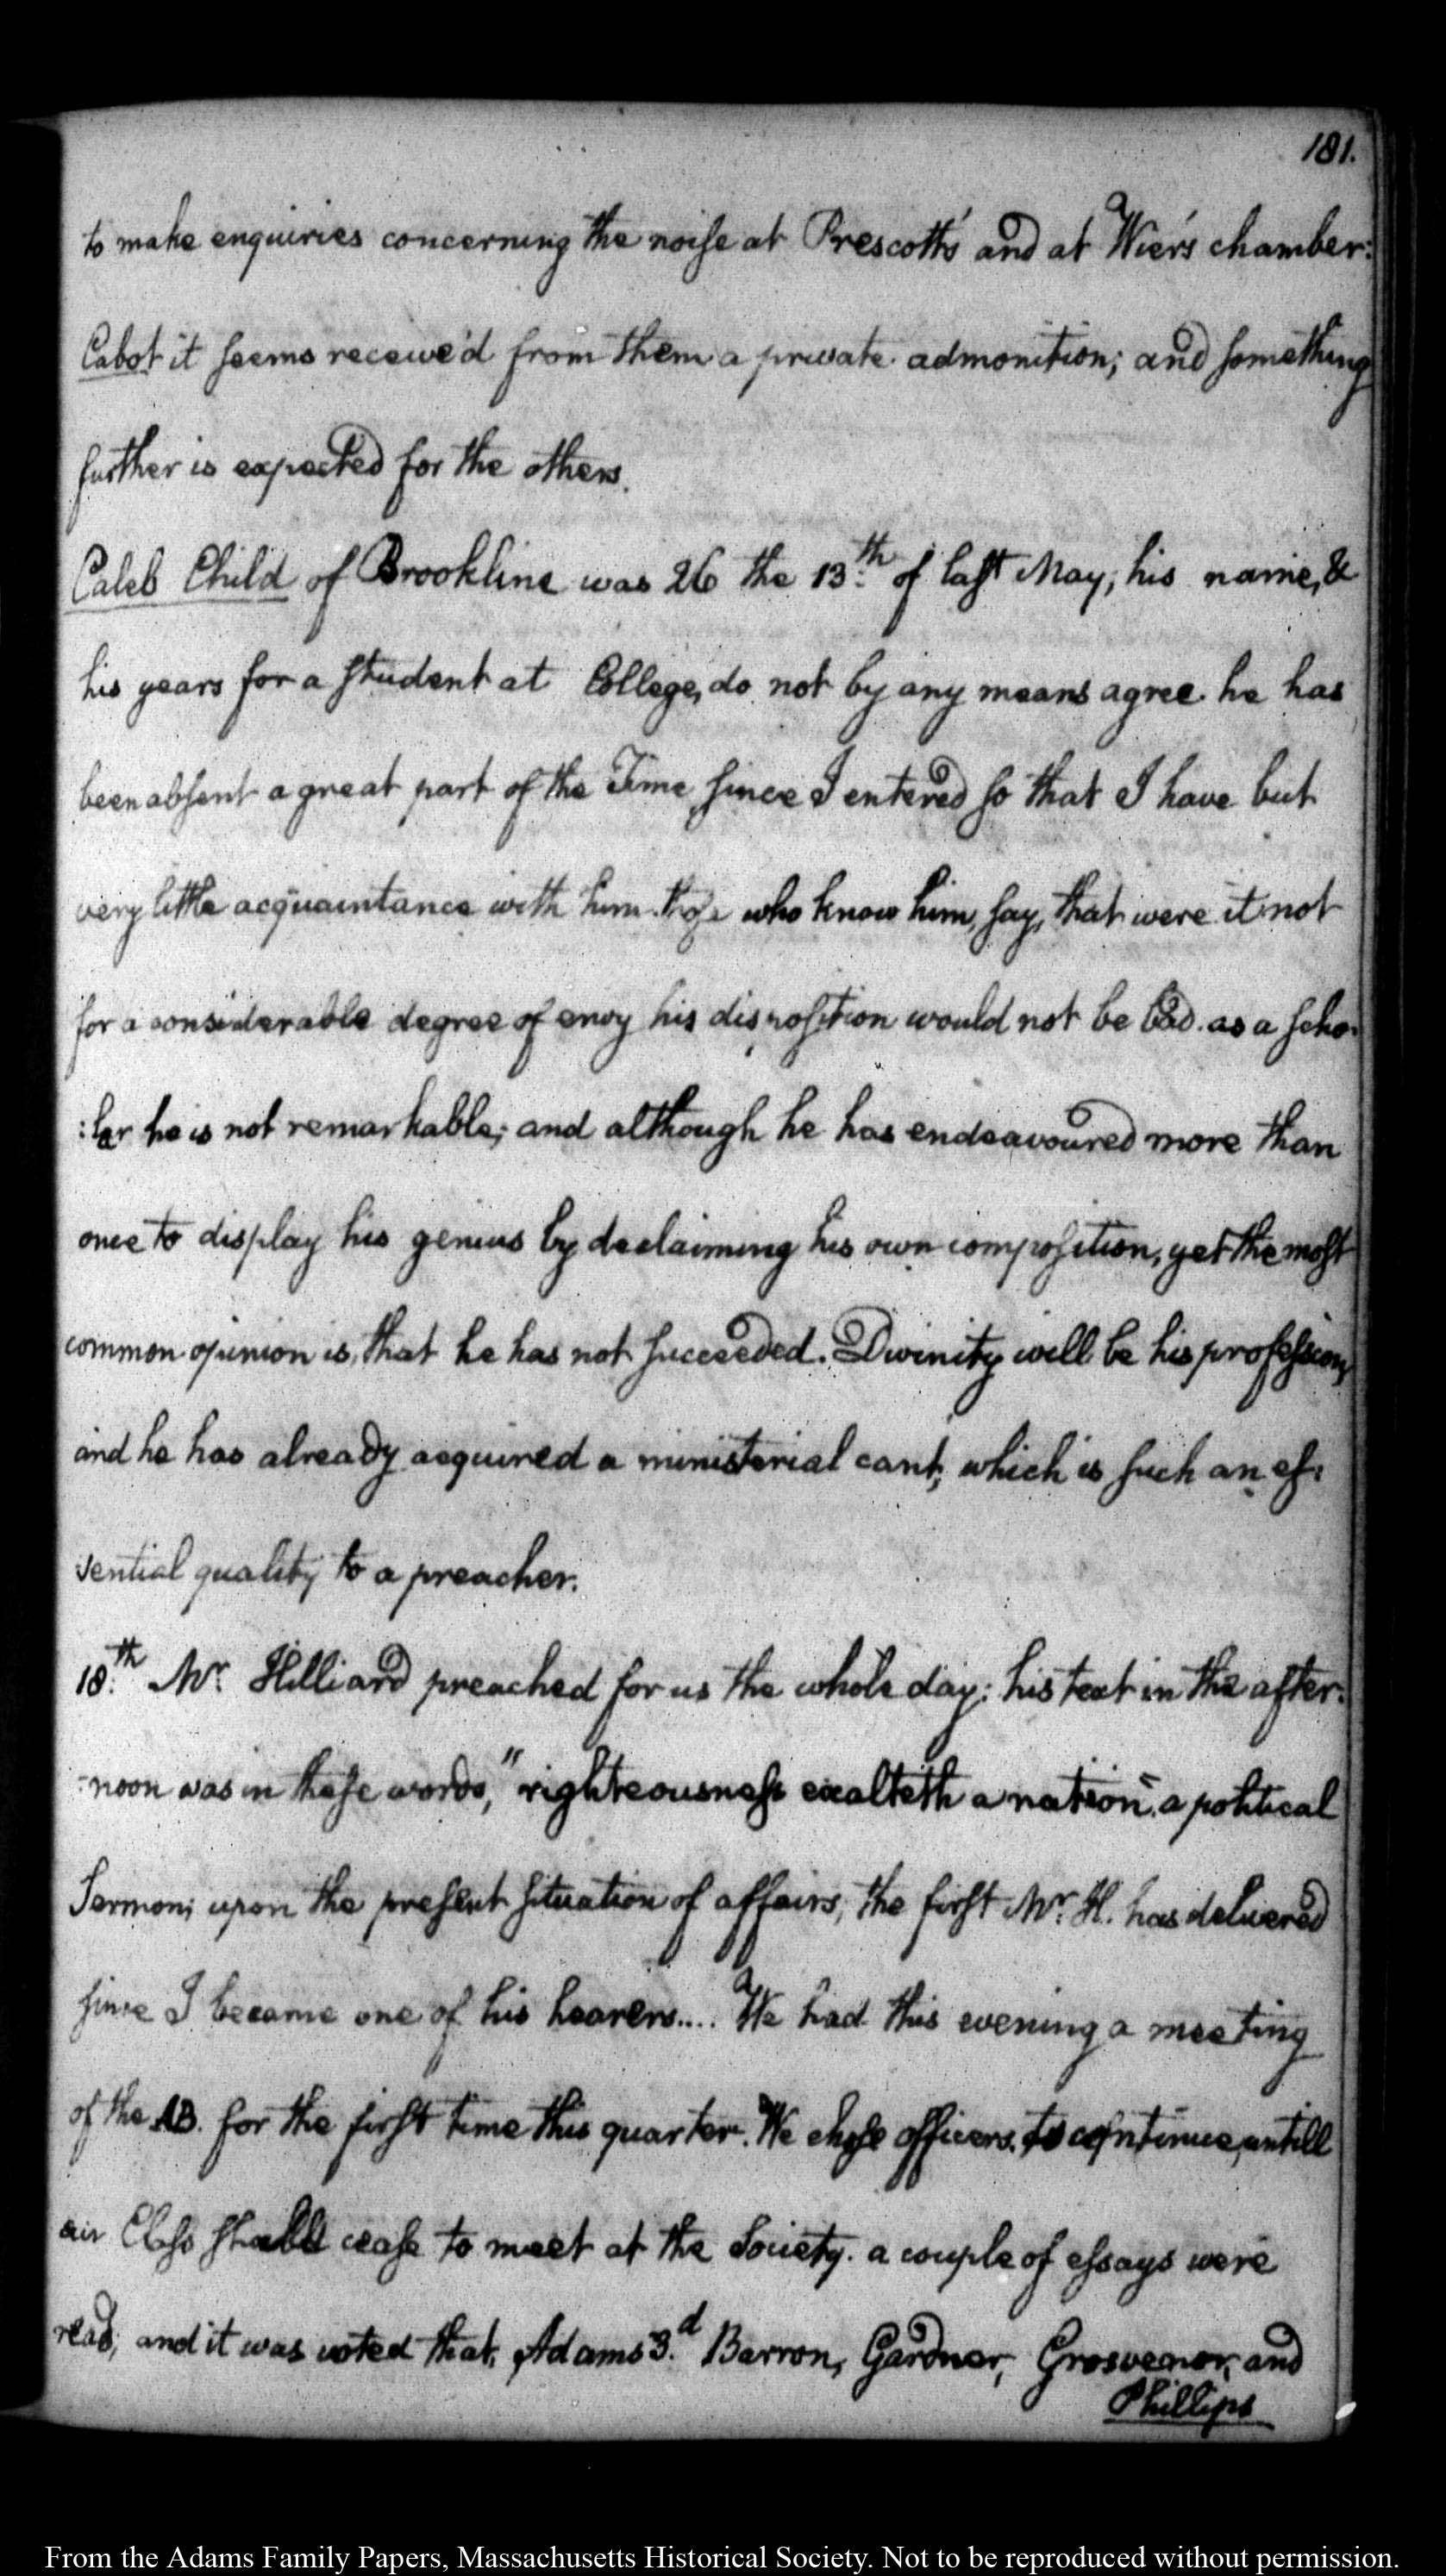 181.
to make enquiries concerning the noise at Prescott's and at Wier's chamber:
Cabot it seems receive'd from them a private admonition; and something
further is expected for the others.
Caleb Child of Brookline was 26 the 13.th of last May; his name, &
his years for a student at College, do not by any means agree. he has
been absent a great part of the Time since I entered so that I have but
very little acquaintance with him. those who know him, say, that were it not
for a considerable degree of envy his disposition would not be bad. as a scho-
:lar he is not remarkable; and although he has endeavoured more than
once to display his genius by declaiming his own composition, yet the most
common opinion is, that he has not succeeded. Divinity will be his profession,
and he has already acquired a ministerial cant, which is such an es:
:sential quality to a preacher.
18.th Mr. Hilliard preached for us the whole day: his text in the after:
:noon was in these words, "righteousness exalteth a nation." a political
Sermon; upon the present situation of affairs, the first Mr. H. has delivered
since I became one of his hearers.... We had this evening a meeting
of the AB. for the first time this quarter. We chose officers, to continue, untill
our Class shall cease to meet at the Society. a couple of essays were
read, and it was voted that, Adams 3.d Barron, Gardner, Grosvenor, and
Phillips
From the Adams Family Papers, Massachusetts Historical Society. Not to be reproduced without permission.